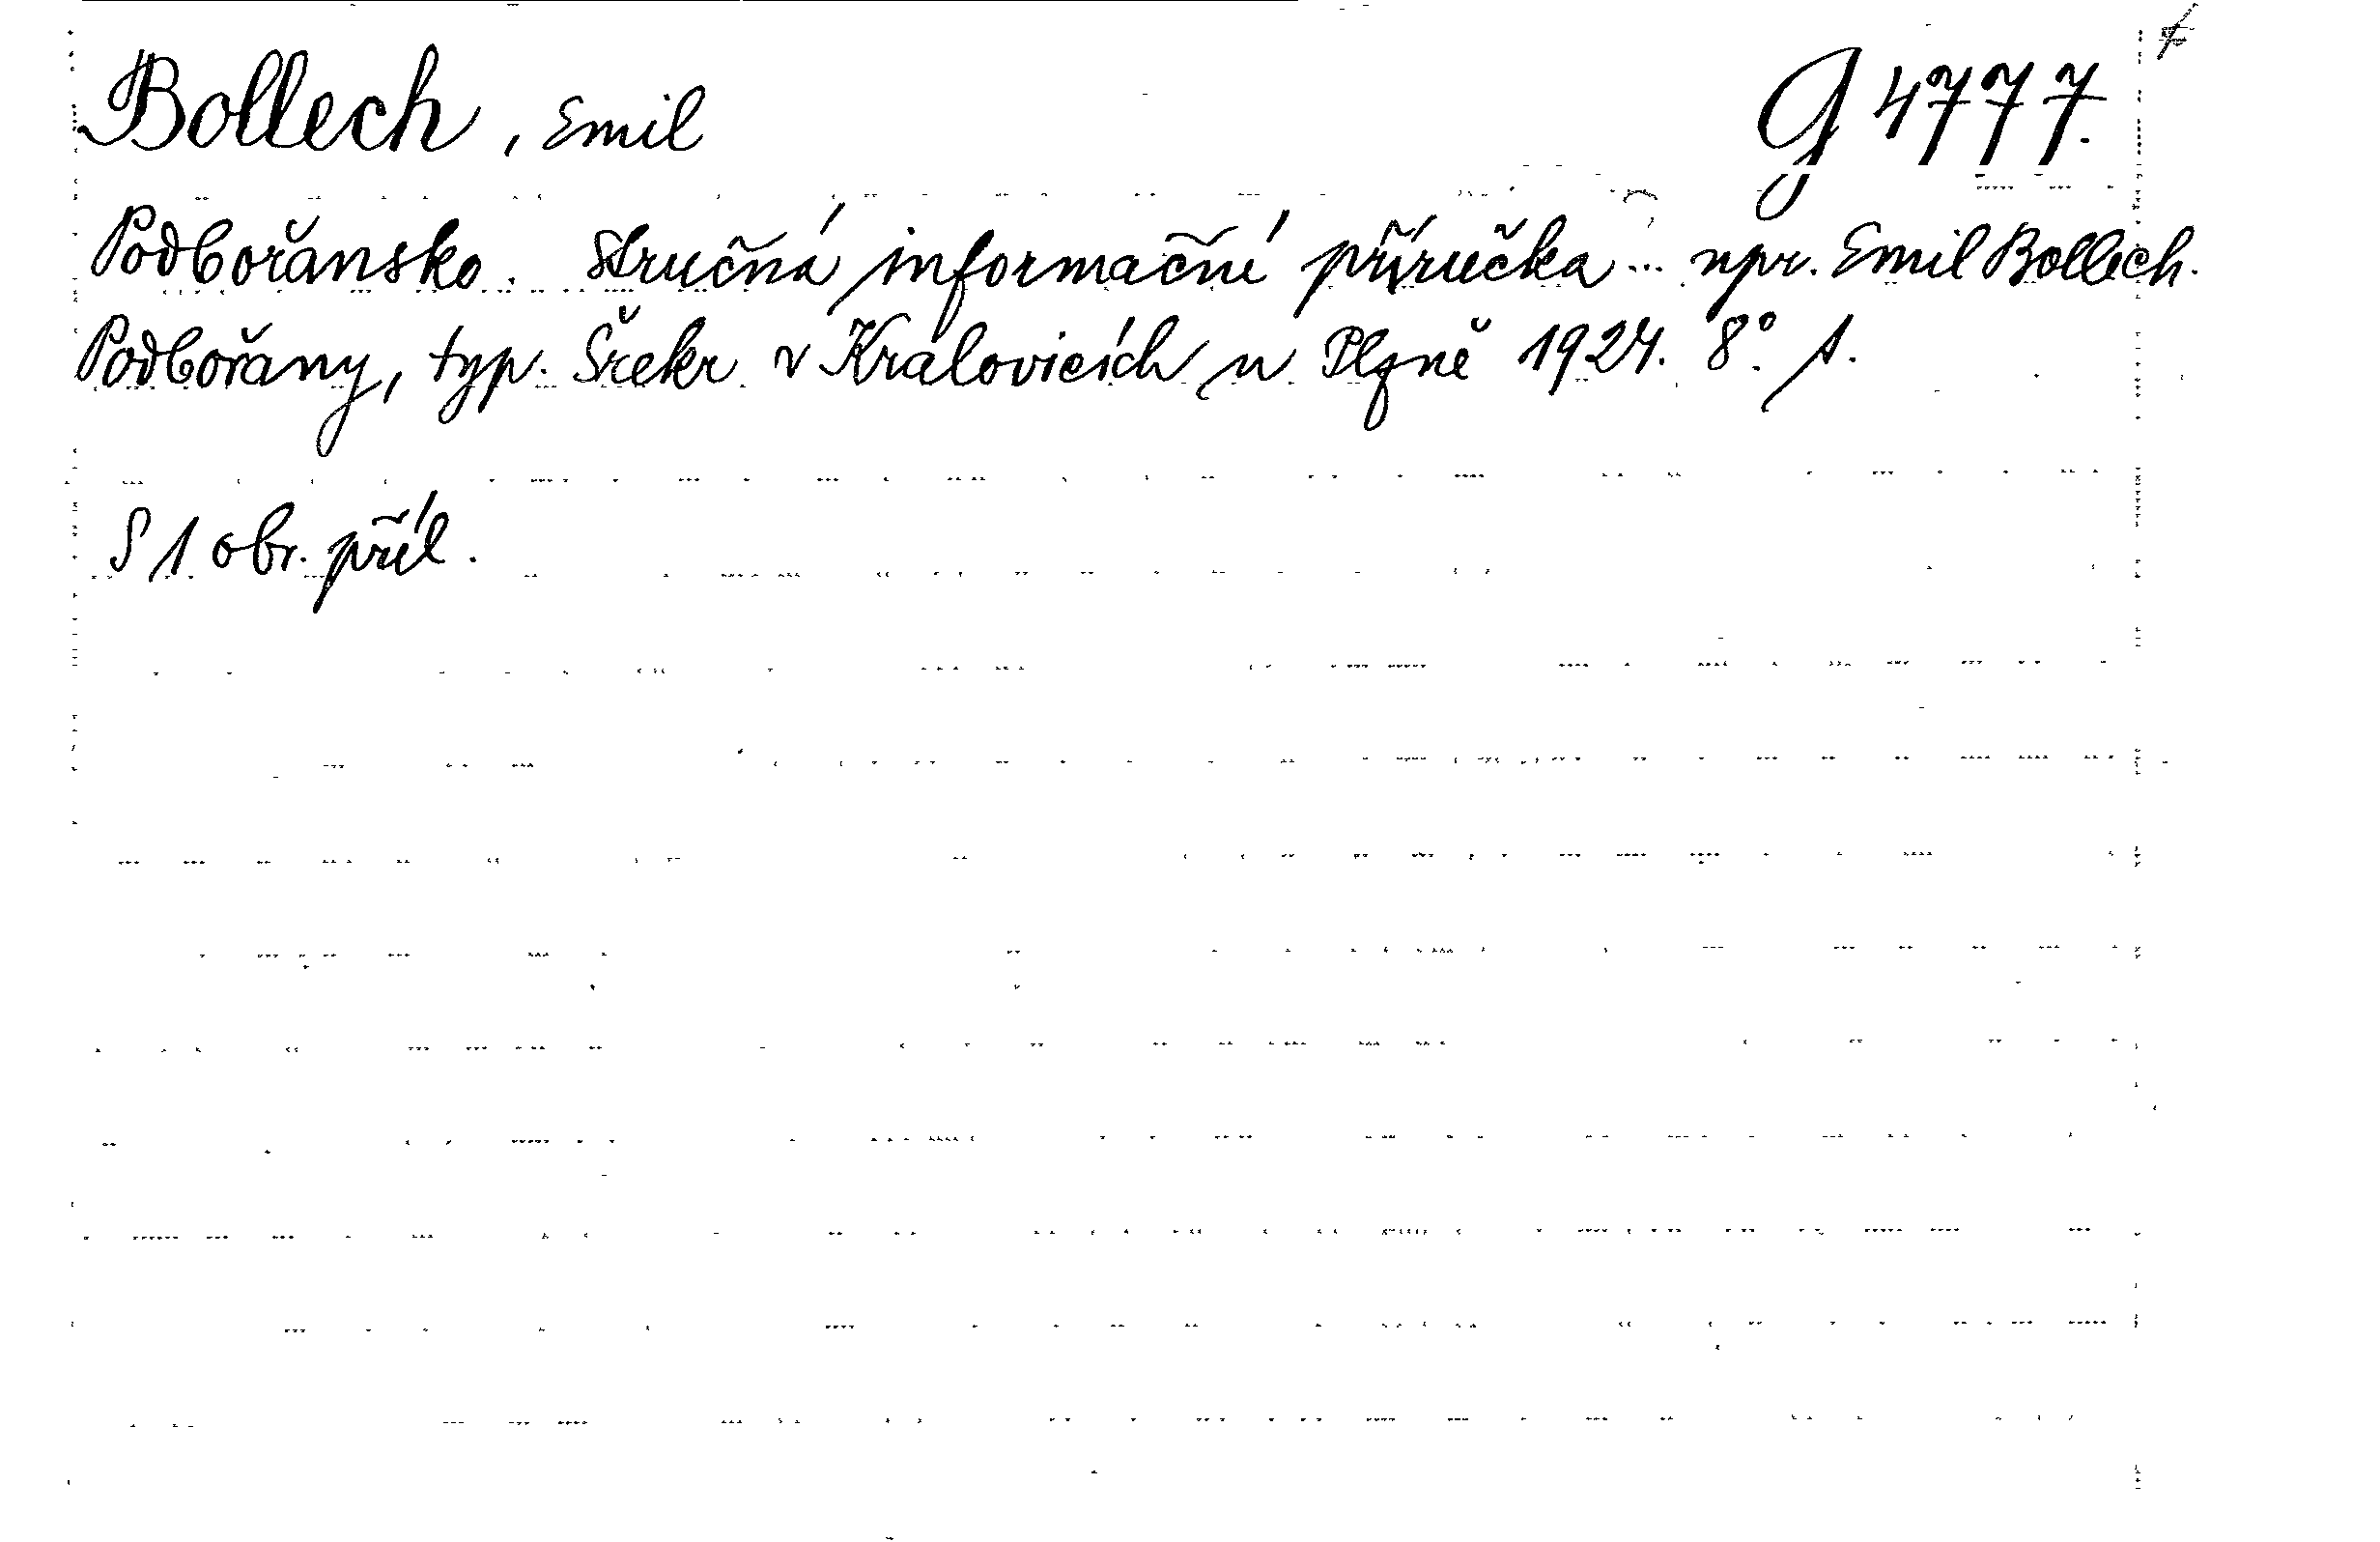 Bollech, Emil G 4777.
Podbořansko. Stručná informační příručka... upr. Emil Bollech.
Podbořany, typ. Šrekr v Kralovicích u Plzně 1924. 8°. s.
S 1 obr. příl.